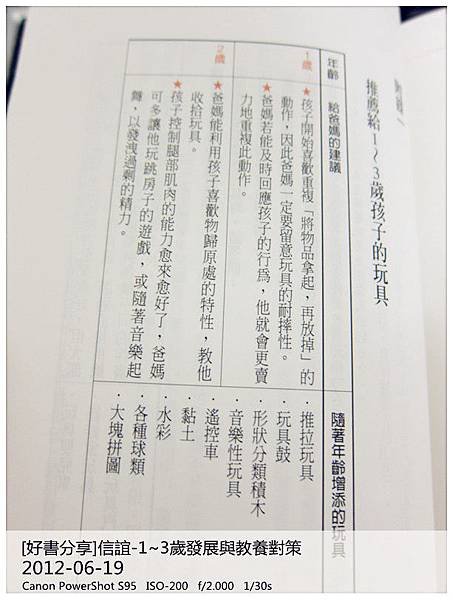 推薦給1~3歲孩子的玩具
年齡
給爸媽的建議
隨著年齡增添的玩具
1歲
★孩子開始喜歡重複「將物品拿起，再放掉」的
動作，因此爸媽一定要留意玩具的耐摔性。
★爸媽若能及時回應孩子的行為，他就會更賣
力地重複此動作。
·推拉玩具
·玩具鼓
·形狀分類積木
·音樂性玩具
2歲
★爸媽能利用孩子喜歡物歸原處的特性，教他
收拾玩具。
★孩子控制腿部肌肉的能力愈來愈好了，爸媽
可多讓他玩跳房子的遊戲，或隨著音樂起
舞，以發洩過剩的精力。
·遙控車
·黏土
·水彩
·各種球類
·大塊拼圖
[好書分享]信誼-1~3歲發展與教養對策
2012-06-19
Canon PowerShot S95 ISO-200 f/2.000 1/30s